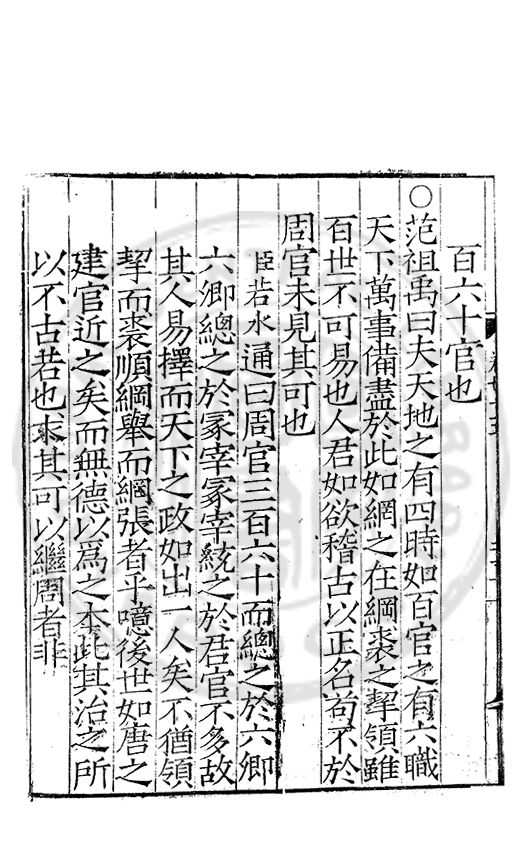 百六十官也
○范祖禹曰夫天地之有四時如百官之有六職
天下萬事備盡於此如網之在綱裘之挈領雖
百世不可易也人君如欲稽古以正名苟不於
周官未見其可也
臣若水通曰周官三百六十而總之於六卿
六卿總之於冢宰冢宰統之於君官不多故
其人易擇而天下之政如出一人矣不猶領
挈而裘順綱舉而網張者乎噫後世如唐之
建官近之矣而無德以爲之本此其治之所
以不古若也求其可以繼周者非